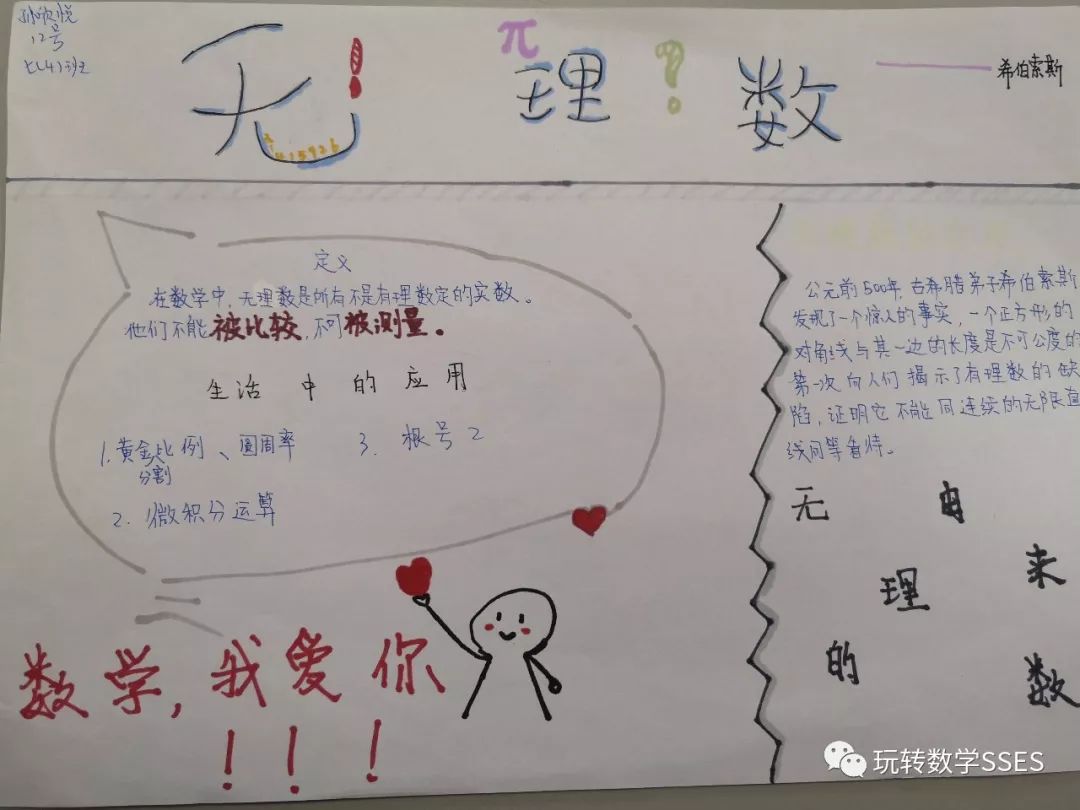 孙欣悦
12号
七(4)班
π
无!理?数
3.1415926
——希伯索斯
定义
在数学中,无理数是所有不是有理数定的实数。
他们不能被比较,不可被测量。
生活中的应用
1.黄金比例、圆周率
分割
3.根号2
2.微积分运算
数学,我爱你
!!!
公元前500年,古希腊弟子希伯索斯
发现了一个惊人的事实,一个正方形的
对角线与其一边的长度是不可公度的
第一次向人们揭示了有理数的缺
陷,证明它不能同连续的无限直
线同等看待。
无理数的由来
玩转数学SSES